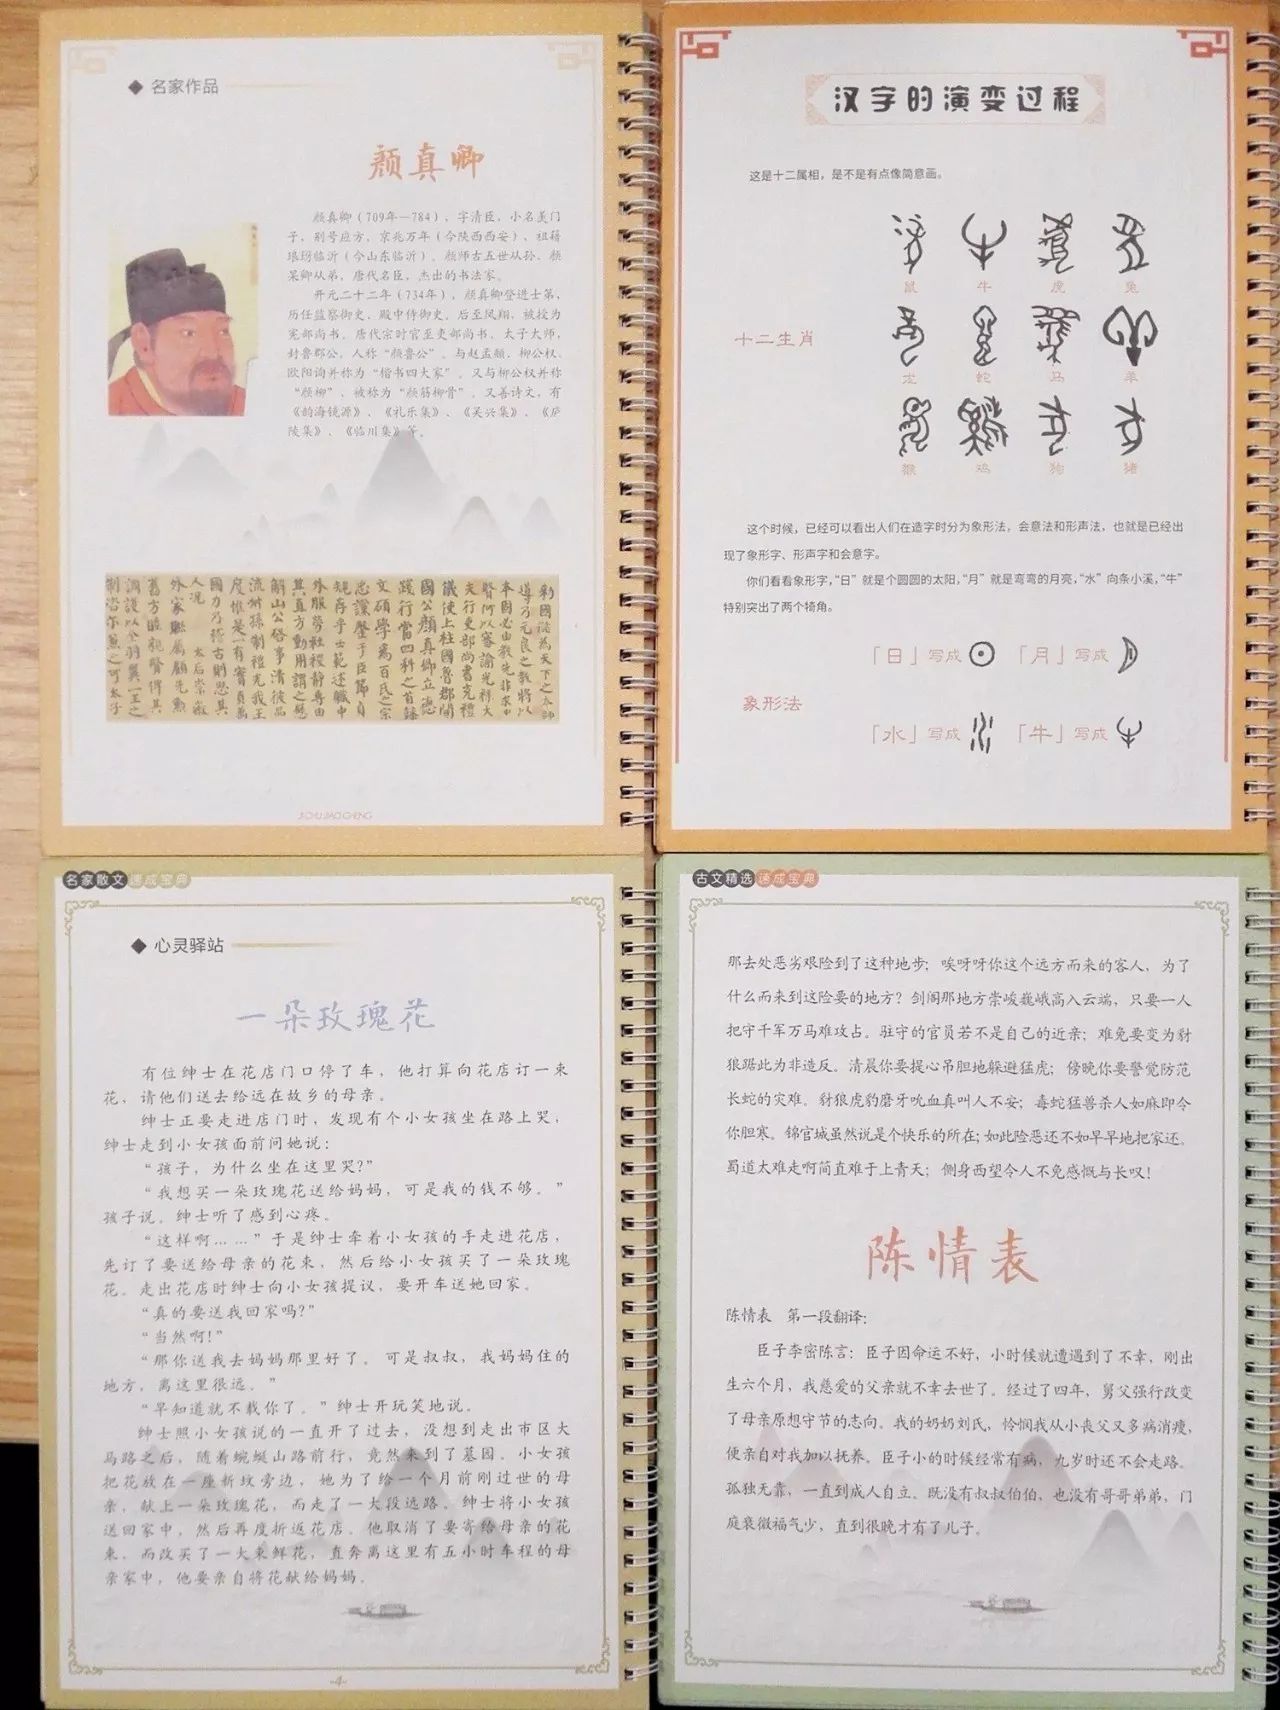 名家作品
颜真卿
颜真卿（709年—784），字清臣，小名羡门
子，别号应方，京兆万年（今陕西西安），祖籍
琅玡临沂（今山东临沂）。颜师古五世从孙、颜
杲卿从弟，唐代名臣，杰出的书法家。
开元二十二年（734年），颜真卿登进士第，
历任监察御史、殿中侍御史。后至凤翔，被授为
宪部尚书。唐代宗时官至吏部尚书、太子太师，
封鲁郡公，人称“颜鲁公”。与赵孟頫、柳公权、
欧阳询并称为“楷书四大家”。又与柳公权并称
“颜柳”，被称为“颜筋柳骨”。又善诗文，有
《韵海镜源》、《礼乐集》、《吴兴集》、《庐
陵集》、《临川集》等。
汉字的演变过程
这是十二属相，是不是有点像简意画。
鼠 牛 虎 兔
十二生肖
龙 蛇 马 羊
猴 鸡 狗 猪
这个时候，已经可以看出人们在造字时分为象形法，会意法和形声法，也就是已经出
现了象形字、形声字和会意字。
你们看看象形字，“日”就是个圆圆的太阳，“月”就是弯弯的月亮，“水”向条小溪，“牛”
特别突出了两个犄角。
「日」写成 「月」写成
象形法
「水」写成 「牛」写成
名家散文速成宝典
心灵驿站
一朵玫瑰花
有位绅士在花店门口停了车，他打算向花店订一束
花，请他们送去给远在故乡的母亲。
绅士正要走进店门时，发现有个小女孩坐在路上哭，
绅士走到小女孩面前问她说：
“孩子，为什么坐在这里哭？”
“我想买一朵玫瑰花送给妈妈，可是我的钱不够。”
孩子说。绅士听了感到心疼。
“这样啊……”于是绅士牵着小女孩的手走进花店，
先订了要送给母亲的花束，然后给小女孩买了一朵玫瑰
花。走出花店时绅士向小女孩提议，要开车送她回家。
“真的要送我回家吗？”
“当然啊！”
“那你送我去妈妈那里好了。可是叔叔，我妈妈住的
地方，离这里很远。”
“早知道就不载你了。”绅士开玩笑地说。
绅士照小女孩说的一直开了过去，没想到走出市区大
马路之后，随着蜿蜒山路前行，竟然来到了墓园。小女孩
把花放在一座新坟旁边，她为了给一个月前刚过世的母
亲，献上一朵玫瑰花，而走了一大段远路。绅士将小女孩
送回家中，然后再度折返花店。他取消了要寄给母亲的花
束，而改买了一大束鲜花，直奔离这里有五小时车程的母
亲家中，他要亲自将花献给妈妈。
-4-
古文精选速成宝典
那去处恶劣艰险到了这种地步；唉呀呀你这个远方而来的客人，为了
什么而来到这险要的地方？剑阁那地方崇峻巍峨高入云端，只要一人
把守千军万马难攻占。驻守的官员若不是自己的近亲；难免要变为豺
狼踞此为非造反。清晨你要提心吊胆地躲避猛虎；傍晚你要警觉防范
长蛇的灾难。豺狼虎豹磨牙吮血真叫人不安；毒蛇猛兽杀人如麻即令
你胆寒。锦官城虽然说是个快乐的所在；如此险恶还不如早早地把家还。
蜀道太难走啊简直难于上青天；侧身西望令人不免感慨与长叹！
陈情表
陈情表 第一段翻译：
臣子李密陈言：臣子因命运不好，小时候就遭遇到了不幸，刚出
生六个月，我慈爱的父亲就不幸去世了。经过了四年，舅父强行改变
了母亲原想守节的志向。我的奶奶刘氏，怜悯我从小丧父又多病消瘦，
便亲自对我加以抚养。臣子小的时候经常有病，九岁时还不会走路。
孤独无靠，一直到成人自立。既没有叔叔伯伯，也没有哥哥弟弟，门
庭衰微福气少，直到很晚才有了儿子。